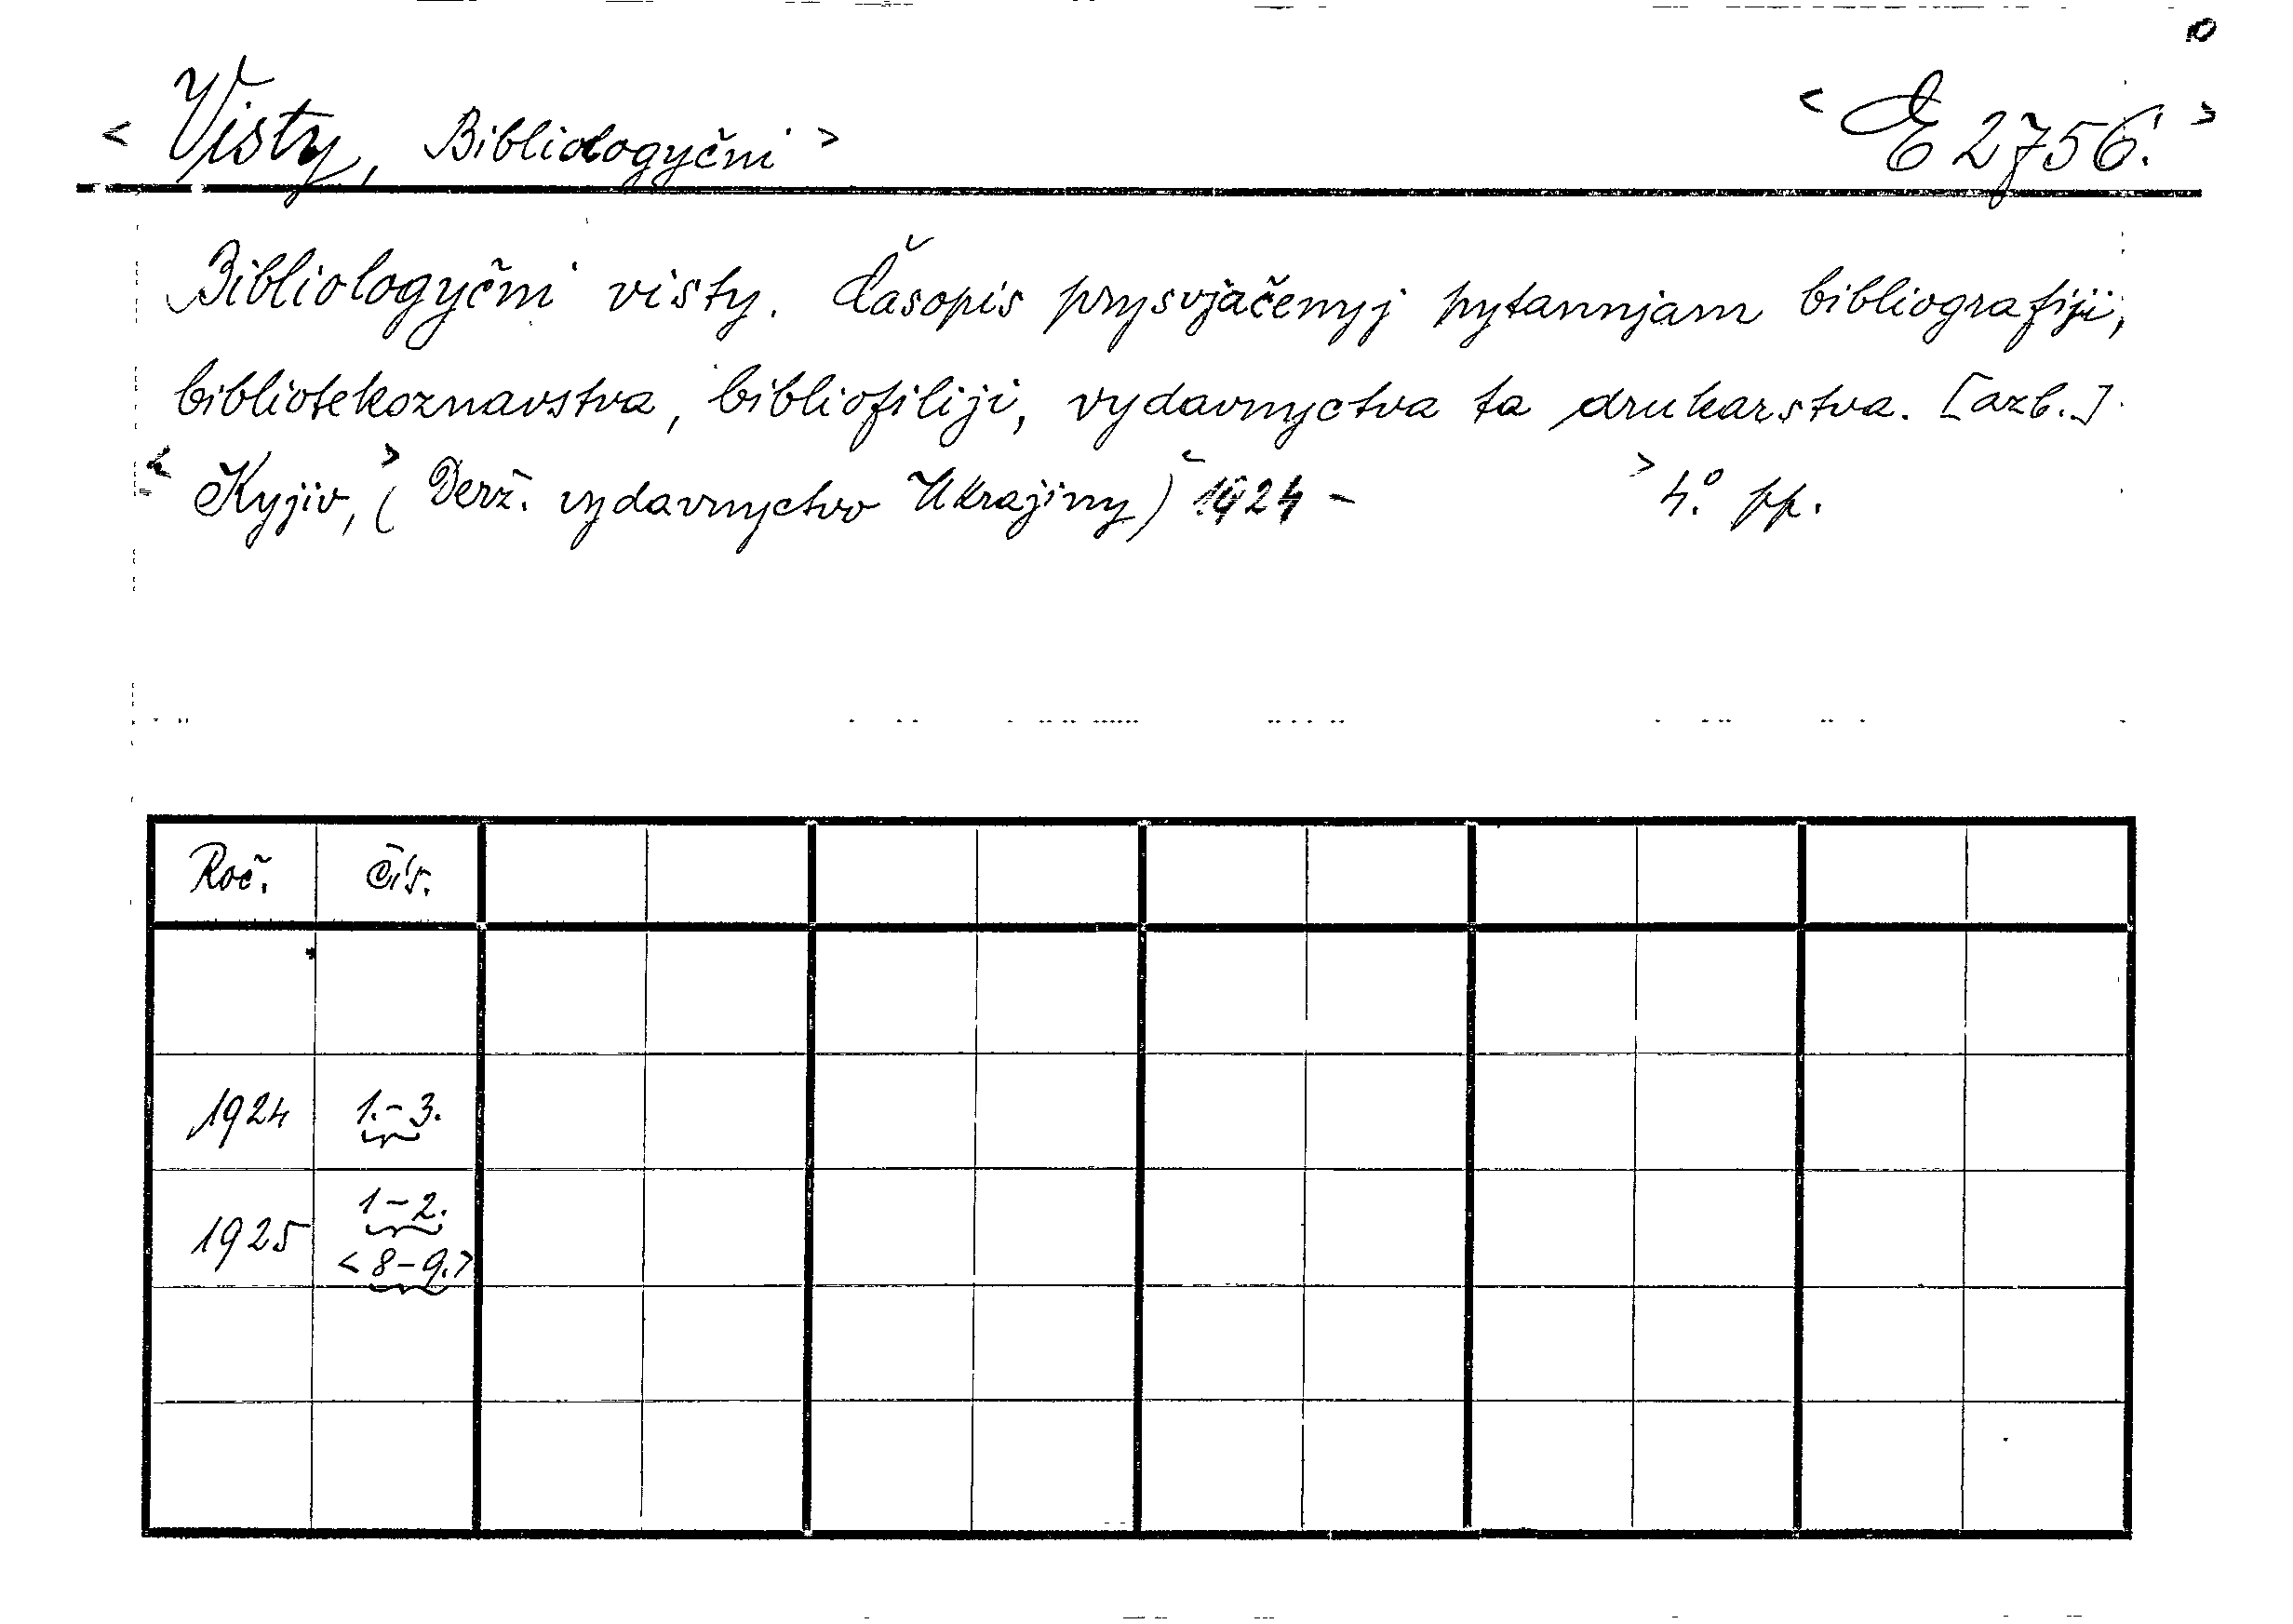 < Visty, Bibliologyčni > < E 2756. >
Bibliologyčni visty. Časopis prysvjačenyj pytannjam bibliografiji,
bibliotekoznavstva, bibliofiliji, vydavnyctva ta drukarstva. [azb.]
< Kyjiv, > (Derž. vydavnyctvo Ukrajiny) < 1924 - > 4.° pp.
Roč. Čís.
1924 1.-3.
1925 1-2.
< 8-9. >